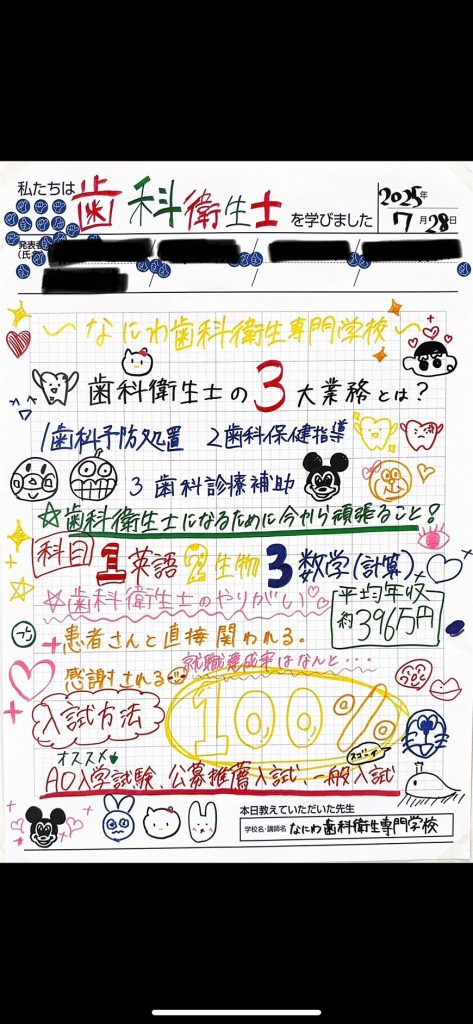 私たちは 歯科衛生士 を学びました
2025年
7月28日
発表者
(氏名)
～なにわ歯科衛生専門学校～
歯科衛生士の3大業務とは?
1歯科予防処置 2歯科保健指導
3 歯科診療補助
☆歯科衛生士になるために今から頑張ること!
科目 1英語 2生物 3数学(計算)
☆歯科衛生士のやりがい♡
平均年収
約396万円
患者さんと直接関われる.
感謝される
就職達成率はなんと・・・
100%
入試方法
スゴーイ
オススメ↓
AO入学試験、公募推薦入試、一般入試
本日教えていただいた先生
学校名・講師名 なにわ歯科衛生専門学校